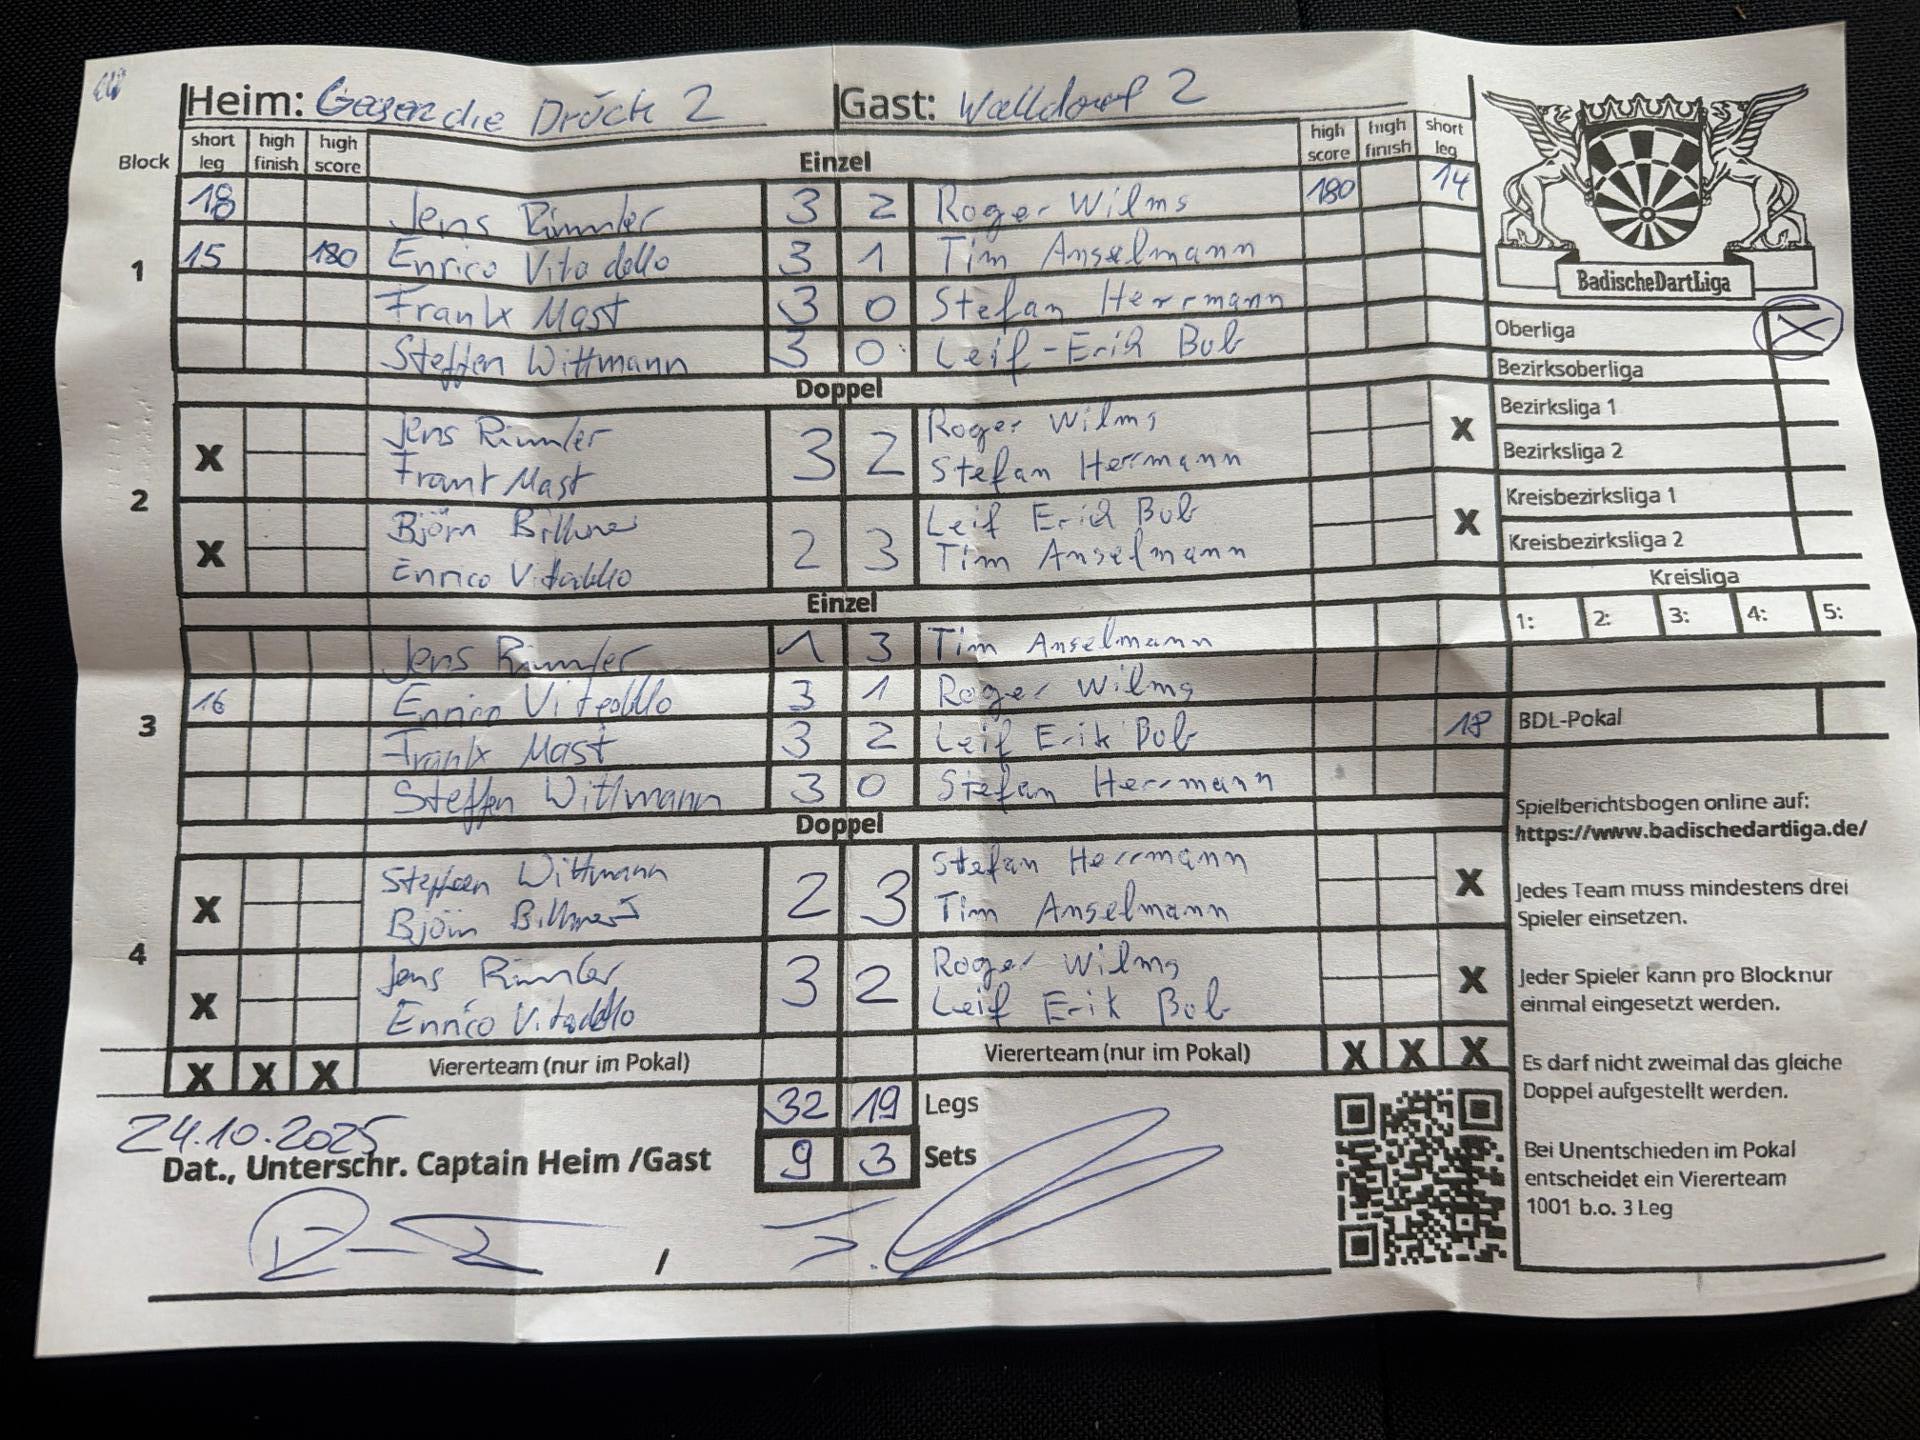 Heim: Gegen die Drück 2 Gast: Walldorf 2
Block short leg high finish high score Einzel high score high finish short leg
1
18 Jens Rimmler 3 2 Roger Wilms 180 14
15 180 Enrico Vitadello 3 1 Tim Anselmann
Frank Mast 3 0 Stefan Herrmann
Steffen Wittmann 3 0 Leif-Erich Bob
Doppel
2
X Jens Rimmler 3 2 Roger Wilms X
Frank Mast Stefan Herrmann
X Björn 2 3 Leif Erich Bob X
Enrico Vitadello Tim Anselmann
Einzel
3
Jens Rimmler 1 3 Tim Anselmann
16 Enrico Vitadello 3 1 Roger Wilms
Frank Mast 3 2 Leif Erik Bob 18
Steffen Wittmann 3 0 Stefan Herrmann
Doppel
4
X Steffen Wittmann 2 3 Stefan Herrmann X
Björn Tim Anselmann
X Jens Rimmler 3 2 Roger Wilms X
Enrico Vitadello Leif Erik Bob
X X X Viererteam (nur im Pokal) Viererteam (nur im Pokal) X X X
32 19 Legs
9 3 Sets
24.10.2025
Dat., Unterschr. Captain Heim /Gast
/
BadischeDartLiga
Oberliga X
Bezirksoberliga
Bezirksliga 1
Bezirksliga 2
Kreisbezirksliga 1
Kreisbezirksliga 2
Kreisliga
1: 2: 3: 4: 5:
BDL-Pokal
Spielberichtsbogen online auf:
https://www.badischedartliga.de/
Jedes Team muss mindestens drei
Spieler einsetzen.
Jeder Spieler kann pro Blocknur
einmal eingesetzt werden.
Es darf nicht zweimal das gleiche
Doppel aufgestellt werden.
Bei Unentschieden im Pokal
entscheidet ein Viererteam
1001 b.o. 3 Leg